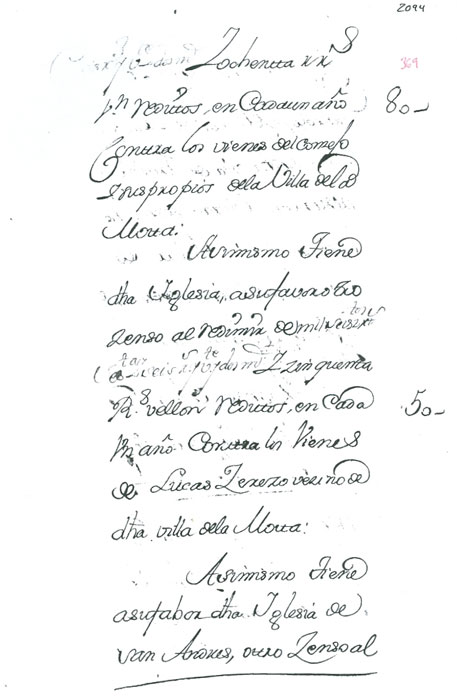 2094
369
Y ochentta rr^s
Vn Reditos, en Cada un año 80_
Contra los vienes del Consejo
Y sus propios de la Villa de la
Motta:
Assimismo Tiene
dha Yglesia, a su favor otro
Zenso al Redimir de mil seiszien
Y Zinquenta
R^s vellon Reditos, en Cada 50_
Vn año Conttra los Vienes
de Lucas Zerezo vezino de
dha villa de la Motta:
Assimismo Tiene
a su fabor dha Yglesia de
san Andres, otro Zenso al